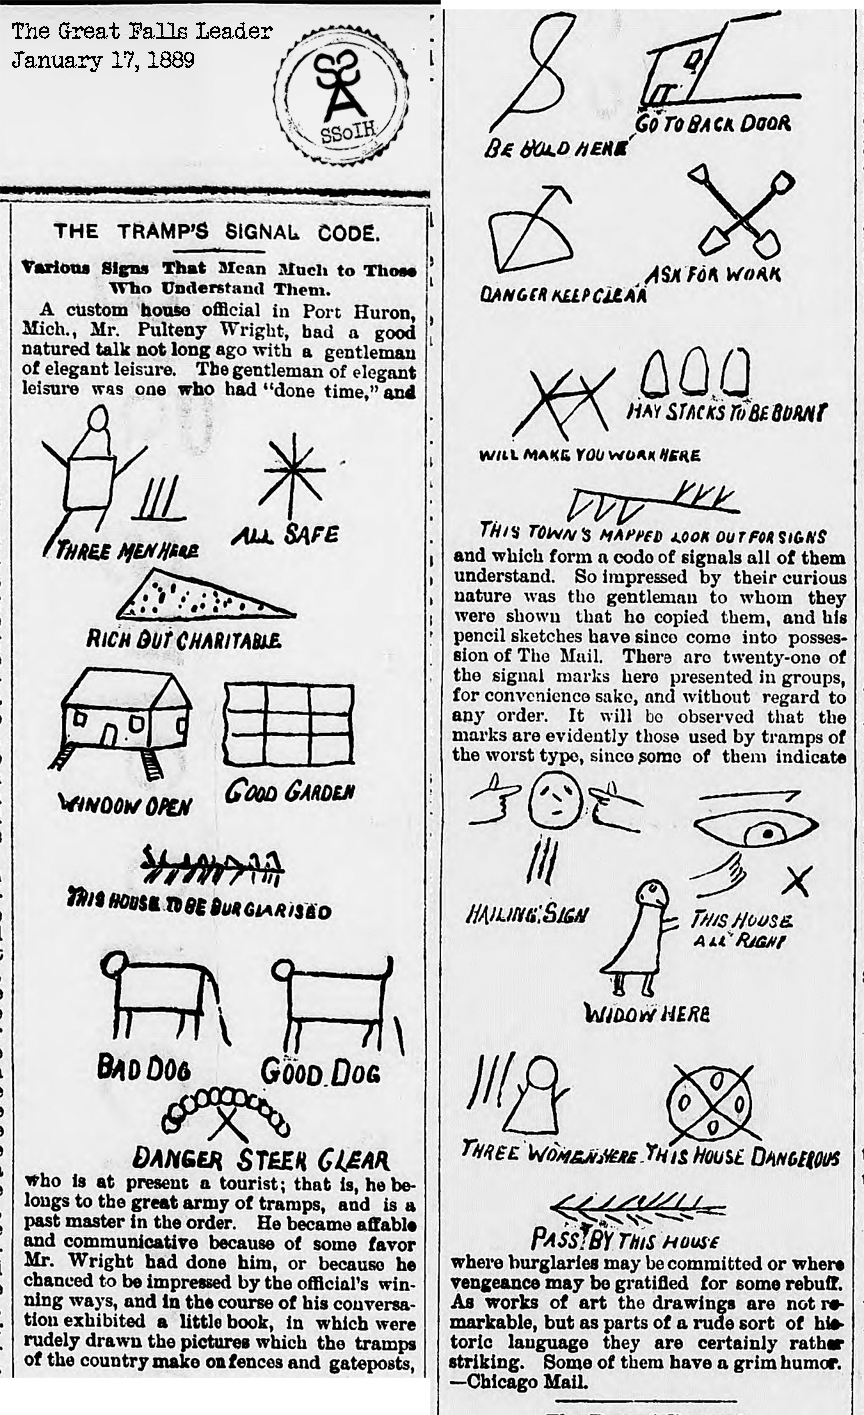 The Great Falls Leader
January 17, 1889
SSoIH
THE TRAMP'S SIGNAL CODE.
Various Signs That Mean Much to Those
Who Understand Them.
A custom house official in Port Huron,
Mich., Mr. Pulteny Wright, had a good
natured talk not long ago with a gentleman
of elegant leisure. The gentleman of elegant
leisure was one who had "done time," and
THREE MEN HERE
ALL SAFE
RICH BUT CHARITABLE
WINDOW OPEN
GOOD GARDEN
THIS HOUSE TO BE BURGLARISED
BAD DOG
GOOD DOG
DANGER STEER CLEAR
who is at present a tourist; that is, he be-
longs to the great army of tramps, and is a
past master in the order. He became affable
and communicative because of some favor
Mr. Wright had done him, or because he
chanced to be impressed by the official's win-
ning ways, and in the course of his conversa-
tion exhibited a little book, in which were
rudely drawn the pictures which the tramps
of the country make on fences and gateposts,
BE BOLD HERE
GO TO BACK DOOR
DANGER KEEP CLEAR
ASK FOR WORK
WILL MAKE YOU WORK HERE
HAY STACKS TO BE BURNT
THIS TOWN'S MAPPED LOOK OUT FOR SIGNS
and which form a code of signals all of them
understand. So impressed by their curious
nature was the gentleman to whom they
were shown that he copied them, and his
pencil sketches have since come into posses-
sion of The Mail. There are twenty-one of
the signal marks here presented in groups,
for convenience sake, and without regard to
any order. It will be observed that the
marks are evidently those used by tramps of
the worst type, since some of them indicate
HAILING SIGN
THIS HOUSE
ALL RIGHT
WIDOW HERE
THREE WOMEN HERE
THIS HOUSE DANGEROUS
PASS BY THIS HOUSE
where burglaries may be committed or where
vengeance may be gratified for some rebuff.
As works of art the drawings are not re-
markable, but as parts of a rude sort of his-
toric language they are certainly rather
striking. Some of them have a grim humor.
—Chicago Mail.